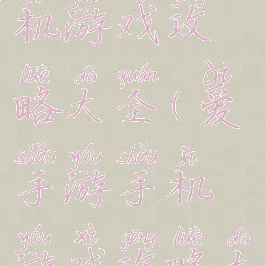 机游戏攻
lüè dà quán ài
略大全(爱
shǒu yóu shǒu jī
手游手机
yóu xì gōng lüè dà